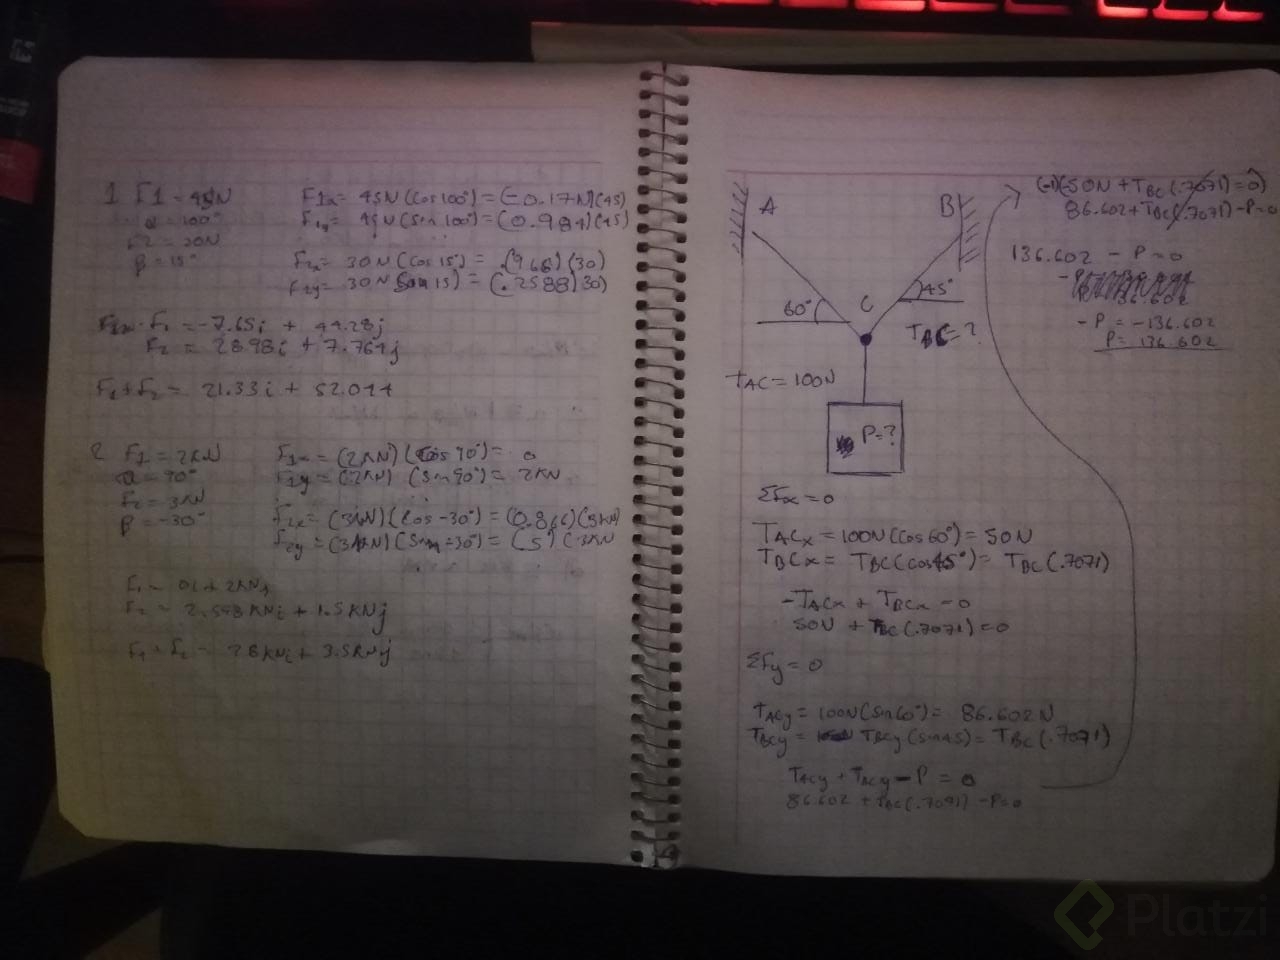 1 F1 = 45N
α = 100°
F2 = 30N
β = 15°
F1x = 45N (Cos 100°) = (-0.17N)(45)
F1y = 45N (Sin 100°) = (0.984)(45)
F2x = 30N (Cos 15°) = (.966)(30)
F2y = 30N (Sen 15) = (.2588)(30)
F1 = -7.65i + 44.28j
F2 = 28.98i + 7.764j
F1 + F2 = 21.33i + 52.044
2 F1 = 2KN
α = 90°
F2 = 3KN
β = -30°
F1x = (2KN)(Cos 90°) = 0
F1y = (2KN) (Sin 90°) = 2KN
F2x = (3KN)(Cos -30°) = (0.866)(3KN)
F2y = (3KN)(Sin -30°) = (.5) (3KN
F1 = 0i + 2KNj
F2 = 2.598KNi + 1.5KNj
F1 + F2 = 2.6KNi + 3.5KNj
A
B
60°
C
45°
TBC = ?
TAC = 100N
P = ?
ΣFx = 0
TACx = 100N (Cos 60°) = 50N
TBCx = TBC (cos 45°) = TBC (.7071)
-TACx + TBCx = 0
50N + TBC (.7071) = 0
ΣFy = 0
TACy = 100N (Sin 60°) = 86.602N
TBCy = TBCy (sin 45) = TBC (.7071)
TACy + TBCy - P = 0
86.602 + TBC (.7071) - P = 0
(-1)(-50N + TBC (.7071) = 0)
86.602 + TBC (.7071) - P = 0
136.602 - P = 0
- P = -136.602
P = 136.602
Platzi